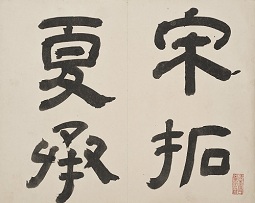 宋拓
夏承